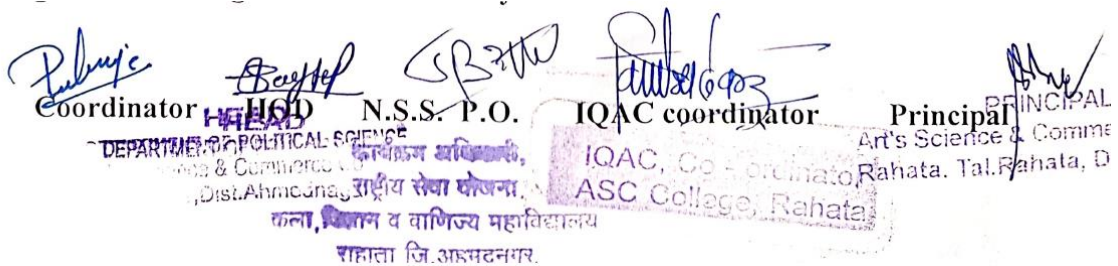 Coordinator HOD N.S.S. P.O. IQAC coordinator Principal
HEAD
DEPARTMENT OF POLITICAL SCIENCE
& Commerce
Dist.Ahmednagar
कार्यक्रम अधिकारी,
राष्ट्रीय सेवा योजना,
कला,विज्ञान व वाणिज्य महाविद्यालय
राहाता जि.अहमदनगर.
IQAC, Co-ordinator
ASC College, Rahata
PRINCIPAL
Art's Science & Comme
Rahata. Tal.Rahata, D